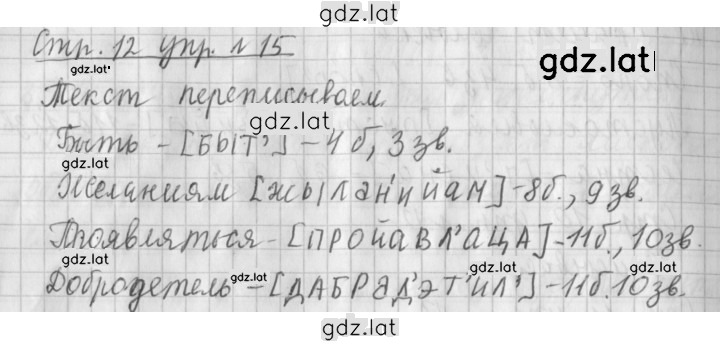 gdz.lat
Стр. 12 упр. № 15
gdz.lat
gdz.lat
Текст переписываем
gdz.lat
Быть - [БЫТ'] - 4 б, 3 зв.
gdz.lat
Желаниям [ЖЫЛАН'ИЙАМ] - 8 б., 9 зв.
Проявляться - [ПРОЙАВЛ'АЦА] - 11 б., 10 зв.
gdz.lat
Добродетель - [ДАБРАД'ЭТ'ИЛ'] - 11 б. 10 зв.
gdz.lat
gdz.lat
gdz.lat
gdz.lat